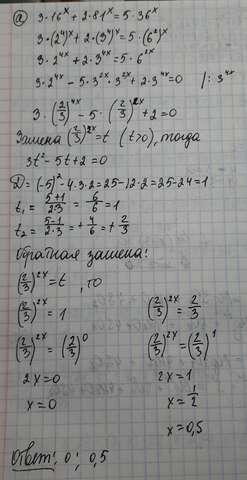 а) 3·16^x + 2·81^x = 5·36^x
3·(2^4)^x + 2·(3^4)^x = 5·(6^2)^x
3·2^{4x} + 2·3^{4x} = 5·6^{2x}
3·2^{4x} - 5·3^{2x}·3^{2x} + 2·3^{4x} = 0 |: 3^{4x}
3·(2/3)^{4x} - 5·(2/3)^{2x} + 2 = 0
Замена (2/3)^{2x} = t (t>0), тогда
3t^2 - 5t + 2 = 0
D = (-5)^2 - 4·3·2 = 25 - 12·2 = 25 - 24 = 1
t_1 = (5+1)/(2·3) = 6/6 = 1
t_2 = (5-1)/(2·3) = +4/6 = +2/3
Обратная замена:
(2/3)^{2x} = t, то
(2/3)^{2x} = 1 (2/3)^{2x} = 2/3
(2/3)^{2x} = (2/3)^0 (2/3)^{2x} = (2/3)^1
2x = 0 2x = 1
x = 0 x = 1/2
x = 0,5
Ответ: 0; 0,5